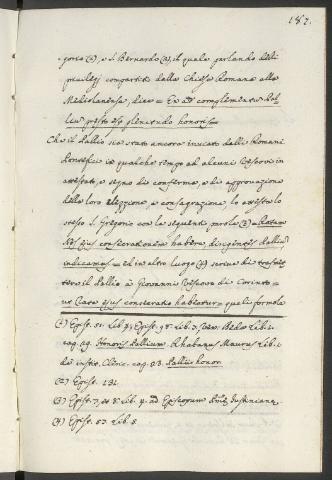 187.
gorio (1), e S. Bernardo (2), il quale parlando delli
privilegj compartiti dalla Chiesa Romana alla
Mediolanense, dice = Ex ad complementum
plenitudo honoris =
Che il Pallio sia stato ancora inviato dalli Romani
Pontefici in qualche tempo ad alcuni Vescovi in
attestato, e segno di conferma, e di approvazione
della loro elezzione, e consagrazione, lo attesta lo
stesso S. Gregorio con le seguenti parole (3) = Ratam
Nos ejus consecrationem habere, dirigentes Pallium
indicamus = ed in altro luogo (4) scrive di
il Pallio a Giovanni Vescovo di Corinto =
ut Rata ejus consecratio habeatur = quali formole
(1) Epist. 51. Lib. 7; Epist. Lib. 7. Beda Lib. 1.
cap. 29. Honoris Pallium. Rhabanus Maurus Lib. 1.
de instit. Cleric. cap. 23. Pallii honor.
(2) Epist. 131.
(3) Epist. 7, et 8. Lib. 4. ad Episcopum Justinianae.
(4) Epist. 57. Lib. 5.